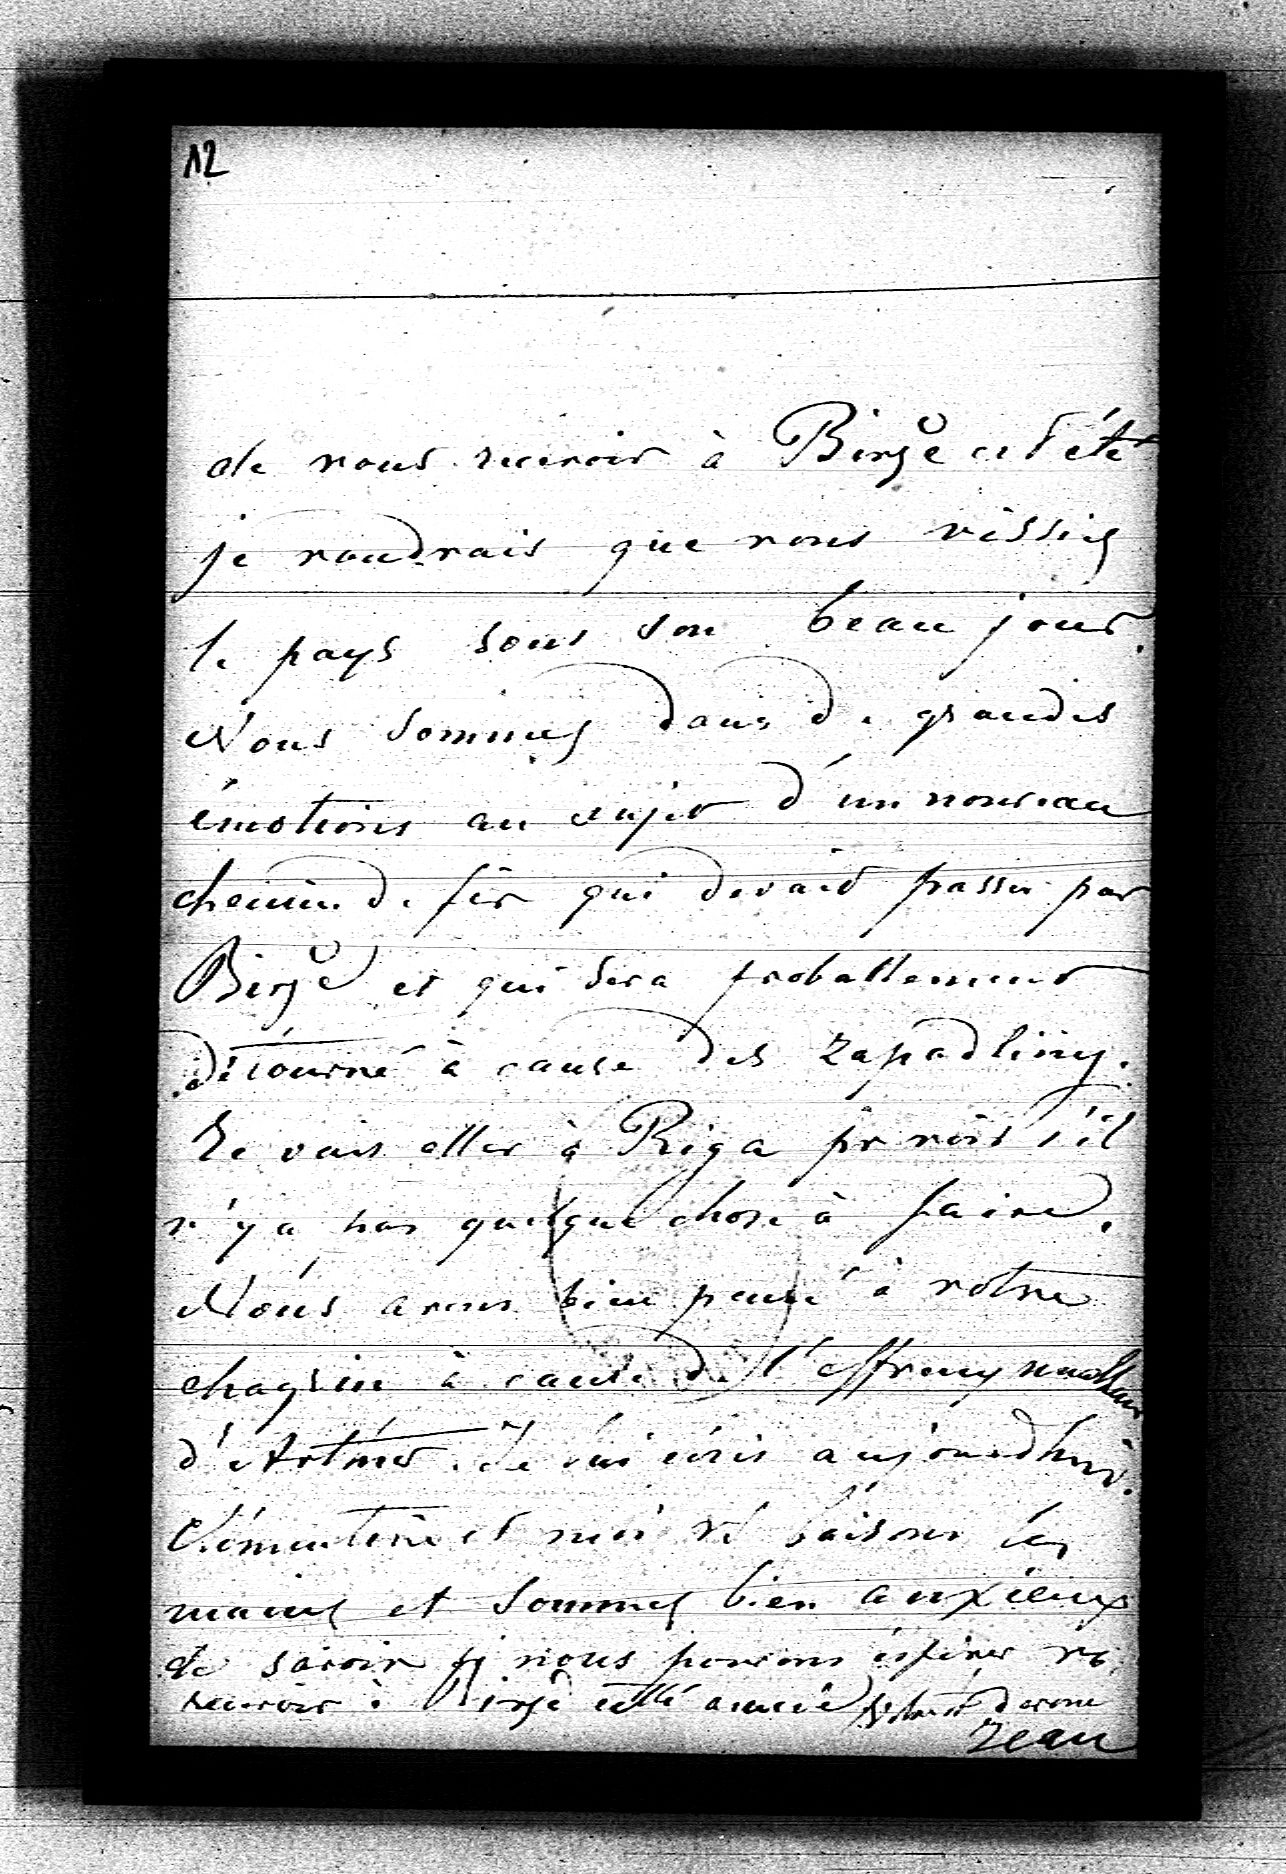 12
de vous recevoir à Birżé cet été
je voudrais que vous vissiez
le pays sous son beau jour.
Nous sommes dans de grandes
émotions au sujet d'un nouveau
chemin de fer qui devait passer par
Birżé et qui sera proballement
détourné à cause des Zapadliny.
Je vais aller à Riga pr voir s'il
n'y a pas quelque chose à faire.
Nous avons bien pensé à votre
chagrin à cause de l'affreux malheur
d'Artur. Je lui écris aujourdhui.
Clémentine et moi vs baisons les
mains et sommes bien anxieux
de savoir si nous pouvons espérer vs
recevoir à Birżé cette année
Jean